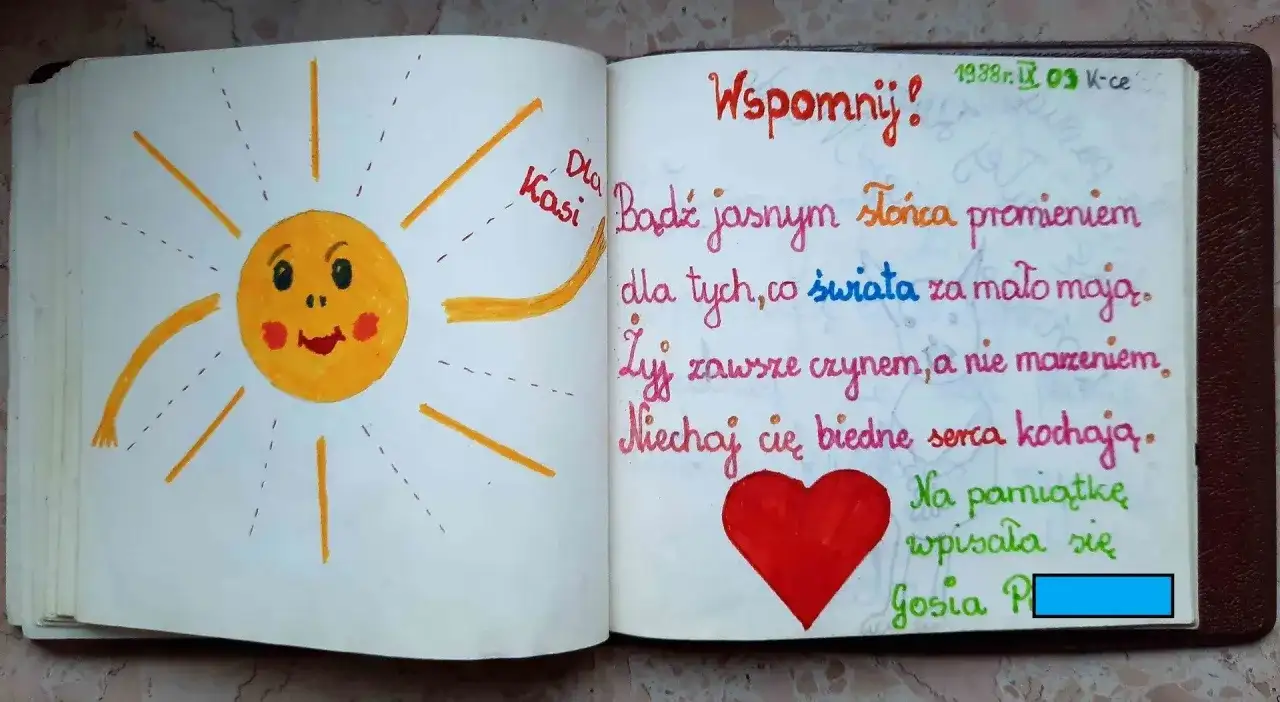 Dla
Kasi
1988r. IX 09 K-ce
Wspomnij!
Bądź jasnym słońca promieniem
dla tych, co świata za mało mają.
Żyj zawsze czynem, a nie marzeniem.
Niechaj cię biedne serca kochają.
Na pamiątkę
wpisała się
Gosia P